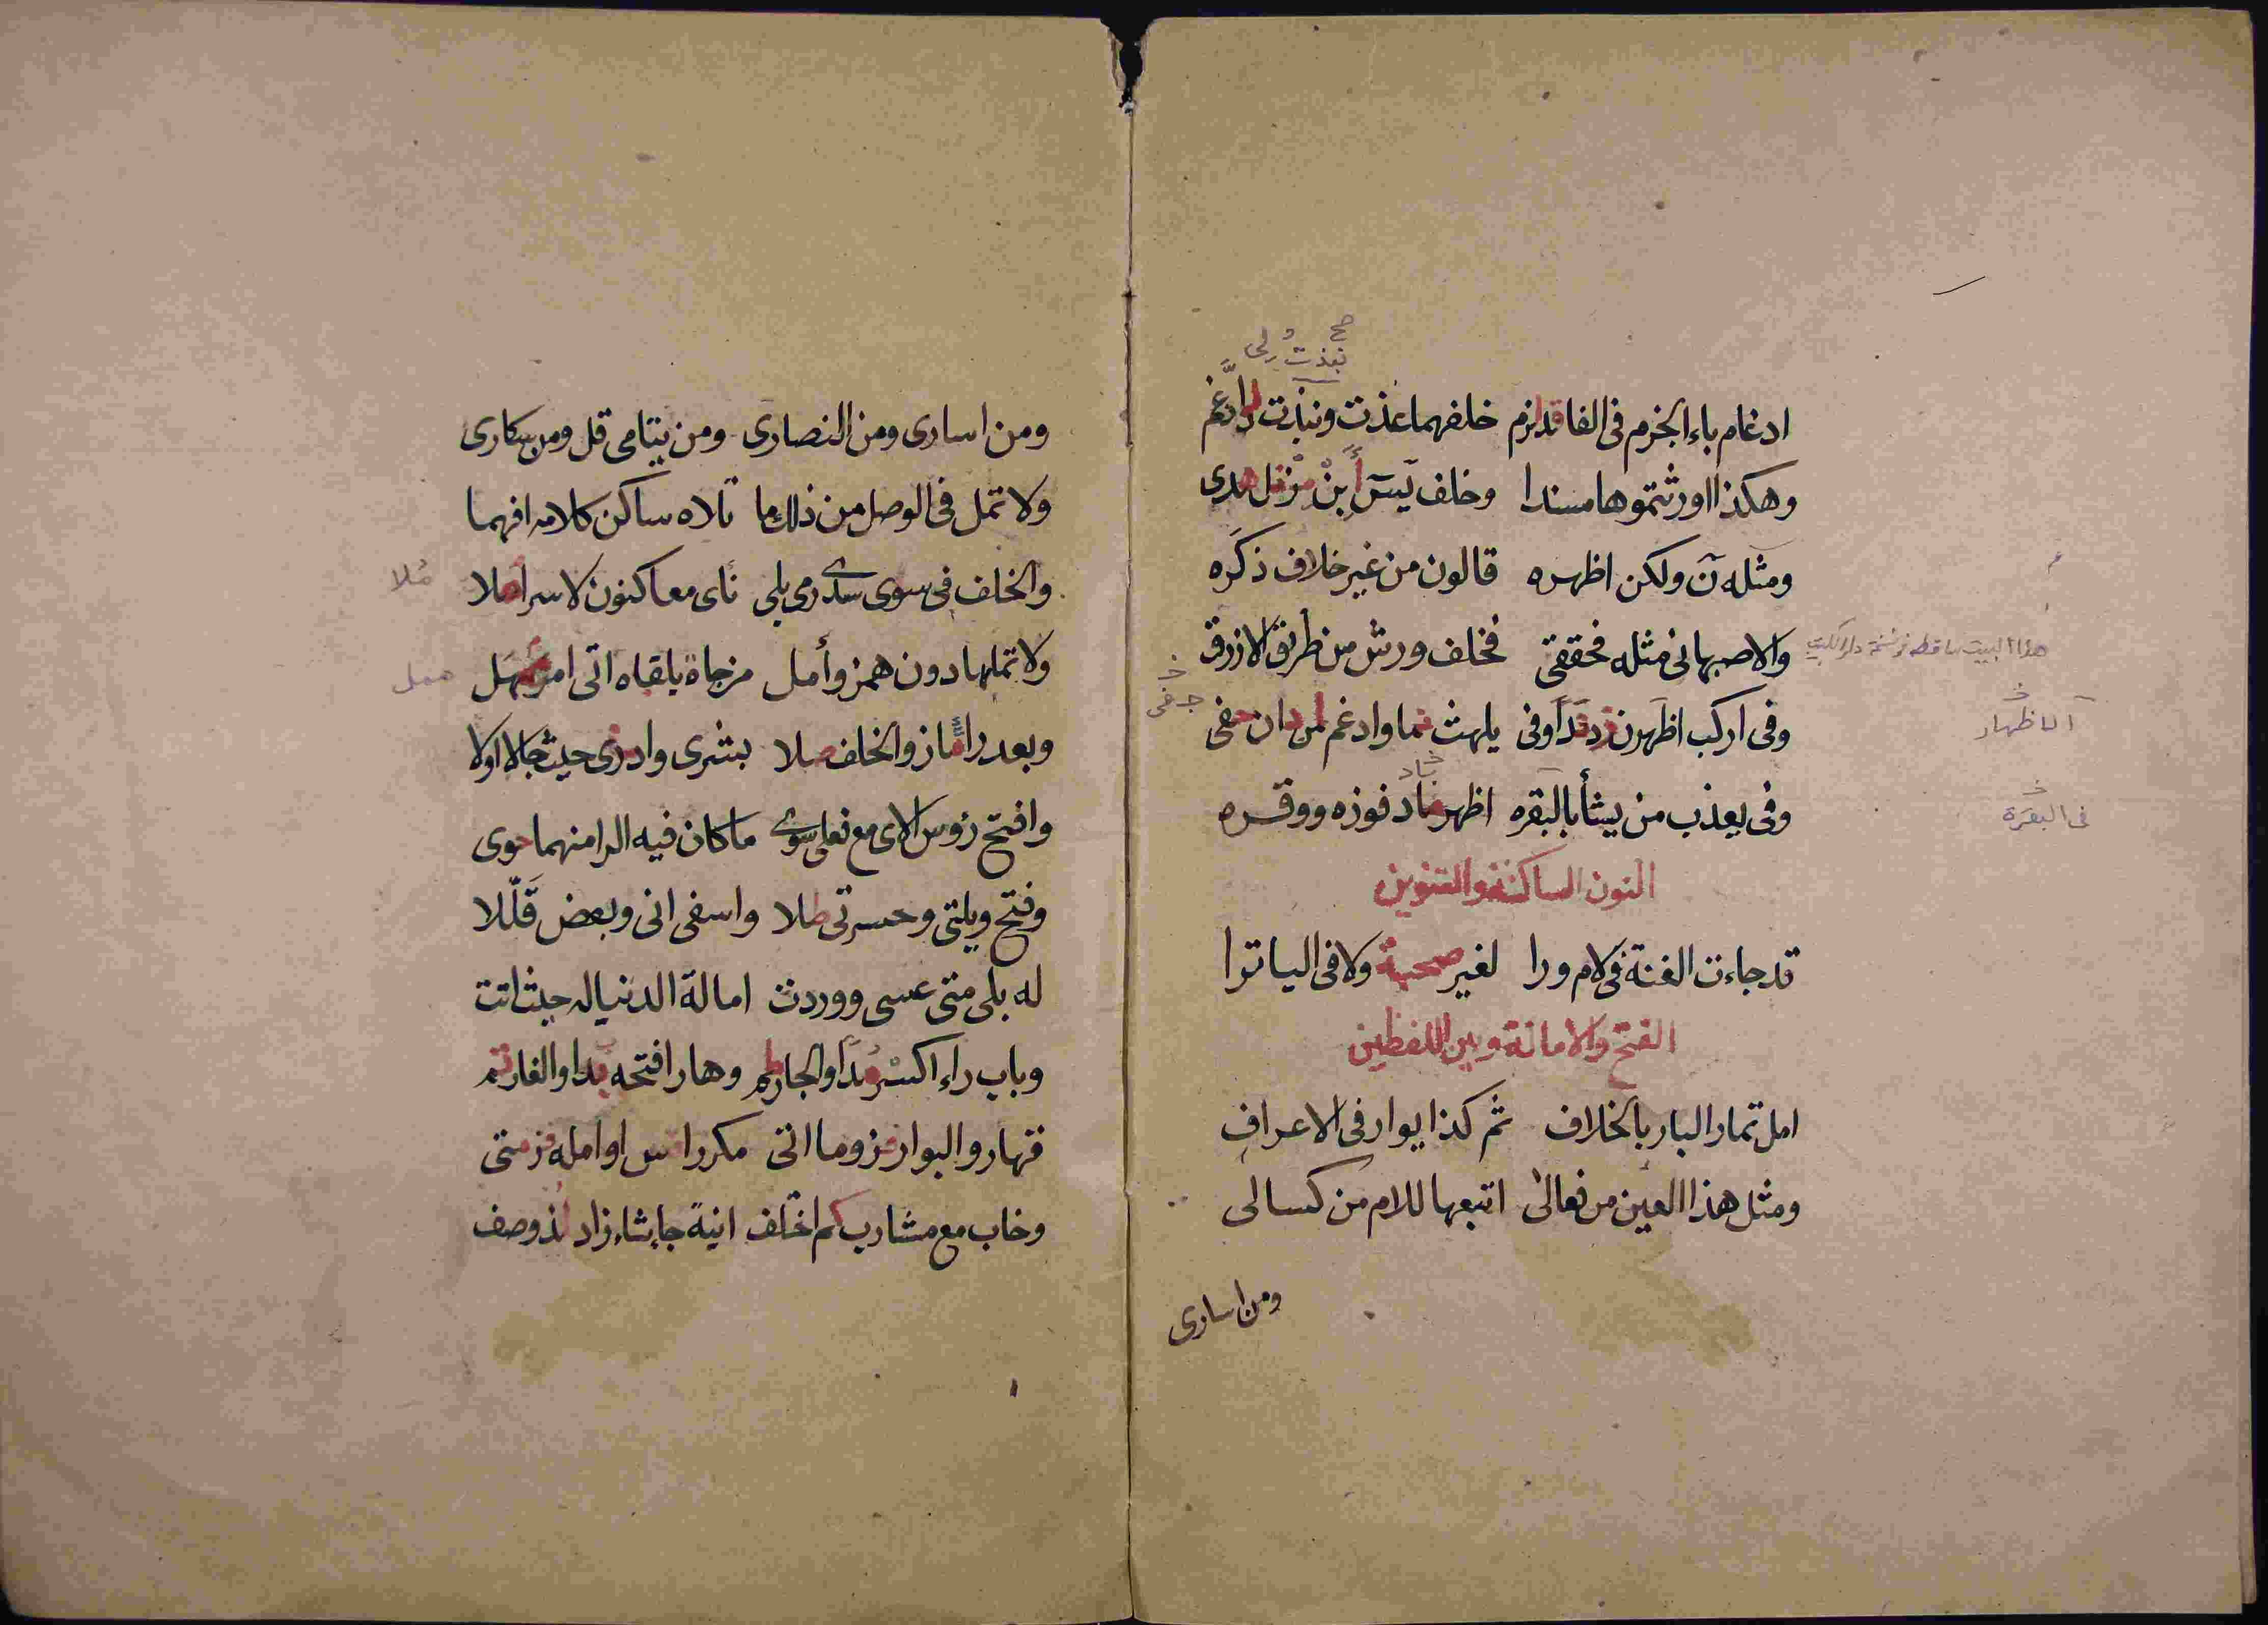 صح
نبذت لى
ادغام باء الجزم فى الفا قد لزم خلفهما عذت ونبذت لرادغم
وهكذا اورثتموها مسندا وخلف يس أبن مز نل هدى
ومثله ن ولكن اظهره قالون من غير خلاف ذكره
والاصبهانى مثله فحققى فخلف ورش من طريق الازرق
هذا البيت ساقط من نسخة دار الكتب
وفى اركب اظهرن وفى يلهث نما وادغم لمن دان حفى
خ
جـ فى
خ
الاظهار
وفى يعذب من يشأ بالبقره اظهر ماد فوزه ووقره
خ
باد
خ
فى البقرة
النون الساكنة والتنوين
قد جاءت الغنة فى لام ورا لغير صحبة ولا فى اليا ترا
الفتح والامالة وبين اللفظين
امل تمار البار بالخلاف ثم كذا يوار فى الاعراف
ومثل هذا العين من فعالى اتبعها للام من كسالى
ومن اسارى
ومن اسارى ومن النصارى ومن يتامى قل ومن سكارى
ولا تمل فى الوصل من ذلك ما تلاه ساكن كلامه افهما
والخلف فى سوى سدى رمى بلى ناى معا كنون لاسرا ملا
مُلا
ولا تملها دون همز وأمل مزجاة يلقاه اتى امر سهل
وبعد راء ماز والخلف صلا بشرى وادرى حيث جا لا اولا
وافتح رؤس الاى مع فعلى سوى ما كان فيه الرا منهما حوى
وفتح ويلتى وحسرتى طلا واسفى انى وبعض قَلّلا
له بلى متى عسى ووردت امالة الدنيا له حيث اتت
وباب راء اكسر والجار وهار افتحه بدا والغار تم
قهار والبوار فز وما اتى مكررا اوامله فز متى
وخاب مع مشارب كم اختلف انية جاء شاء زاد لذ وصف